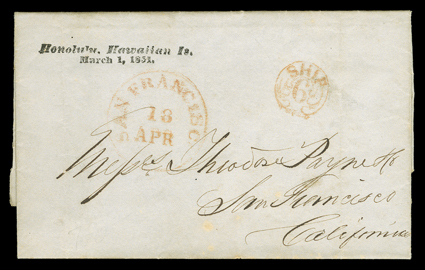 Honolulu, Hawaiian Is.
March 1, 1851.
SHIP
6
SAN FRANCISC
13
APR
Messrs Theodore Payne & Co
San Francisco
California